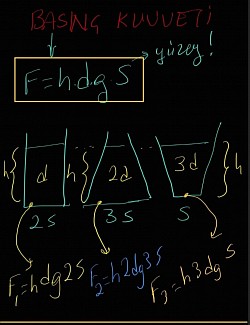 BASINÇ KUVVETİ
yüzey!
F=h.d.g S
h d h 2d 3d h
2S 3S S
F₁=hdg2S F₂=h2dg3S F₃=h3dgS